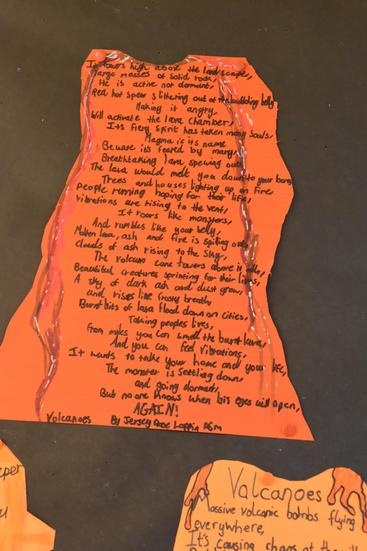 It towers high above the landscape,
Large masses of solid rock,
He is active not dormant,
Red hot spear slithering out of the bubbling belly
Making it angry,
Will activate the lava chamber,
Its fiery spirit has taken many souls,
Magma is its name
Beware its feared by many,
Breathtaking lava spewing out,
The lava would melt you down to your bones
Trees and houses lighting up on fire,
people running hoping for their life,
vibrations are rising to the vent,
It roars like monsters,
And rumbles like your belly,
Molten lava, ash and fire is spitting out,
Clouds of ash rising to the sky,
The volcano cone towers above it all,
Beautiful creatures sprinting for their lives,
A sky of dark ash and dust grow,
and rises like frosty breath,
Burnt bits of lava flood down on cities,
Taking peoples lives,
from miles you can smell the burnt lava,
And you can feel vibrations,
It wants to take your home and your life,
The monster is settling down,
and going dormant,
But no one knows when his eyes will open,
AGAIN!
Volcanoes By Jersey
Volcanoes
Massive volcanic bombs flying
everywhere,
It's causing chaos at the